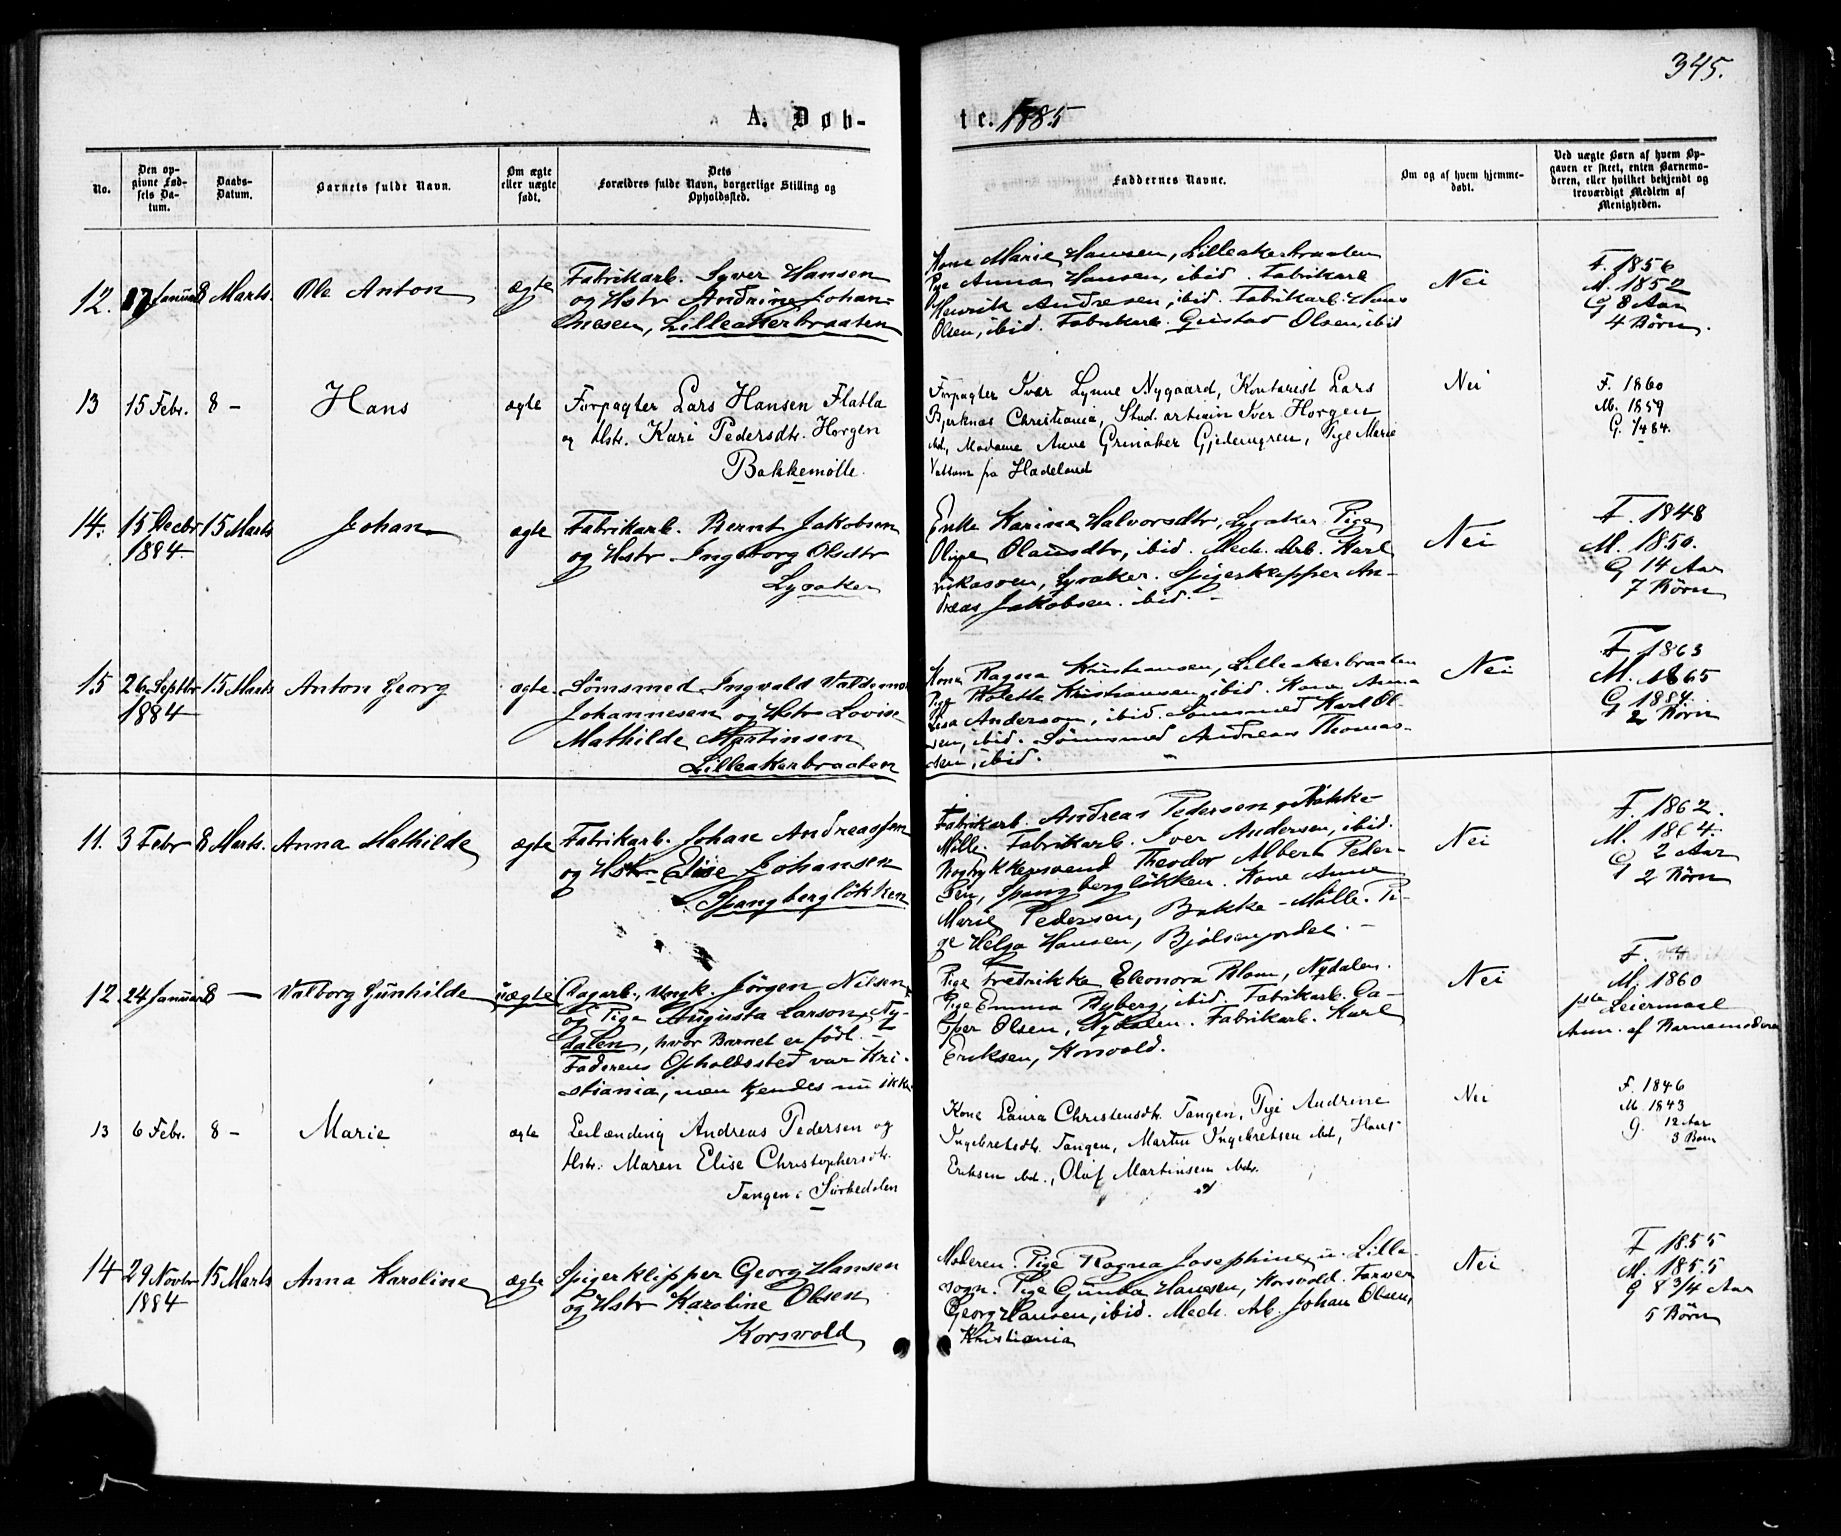 345.
A. Døb-
te. 1885
No.
Den op-
givne Fød-
sels Da-
tum.
Daabs-
Datum.
Barnets fulde Navn.
Om ægte
eller uægte
født.
Dets
Forældres fulde Navn, borgerlige Stilling og
Opholdssted.
Faddernes Navne.
Om og af hvem hjemme-
døbt.
Ved uægte Børn af hvem Op-
gaven er skeet, enten Barnemo-
deren, eller hvilket bekjendt og
troværdigt Medlem af
Menigheden.
12. 17 Januar 8 Marts. Ole Anton ægte
Fabrikarb. Syver Hansen
og Hstr Andrine Johan-
nesen, Lilleakerbraaten
Kone Marie Hansen, Lilleakerbraaten
Pge Anna Hansen, ibid. Fabrikarb
Henrik Andresen, ibid. Fabrikarb. Hans
Olsen, ibid. Fabrikarb. Gustav Olsen, ibid
Nei
F. 1856
M. 1852
G 8 Aar
4 Børn.
13 15 Febr. 8 - Hans ægte
Forpagter Lars Hansen Flatla
og Hstr. Kari Pedersdtr. Horgen
Bakkemølle.
Forpagter Iver Lynne Nygaard, Kontorist Lars
Bjerknæs Christiania, Stud. artium Iver Horgen
ibd., Madame Anne Grinaker Gjedemyren, Pige Marie
fra Hadeland
Nei
F. 1860
M. 1859
G. 1/4 84.
14. 15 Decbr 1884 15 Marts Johan ægte
Fabrikarb. Bernt Jakobsen
og Hstr Ingeborg Olsdtr
Lysaker
Enke Karine Halvorsdtr, Lysaker. Pige
Olsdtr, ibid. Mech. Arb. Karl
Lukassen, Lysaker. Spigerklipper An-
dreas Jakobsen. ibid. -
Nei
F. 1848
M. 1850.
G 14 Aar
7 Børn
15 26 Septbr 1884 15 Marts Anton Georg ægte
Sømsmed Ingvald Valdemar
Johannesen og Hstr Lovise
Mathilde Martinsen
Lilleakerbraaten
Kone Ragna Kristiansen, Lilleakerbraaten
Pige Kristiansen, ibid. Kone Anna
Lisa Anderson, ibid. Sømsmed Karl Ol-
sen, ibid. Sømsmed Andreas Thomas-
sen, ibid.
Nei
F. 1863
M. 1865
G 1884.
2 Børn
11. 3 Febr 8 Marts. Anna Mathilde ægte
Fabrikarb. Johan Andreassen
og Hstr Elise Johansen
Spangbergløkken
Fabrikarb. Andreas Pedersen, Bakke-
Mølle. Fabrikarb. Iver Andersen, ibid.
Bogtrykkersvend Theodor Albert Peder-
sen, Spangbergløkken. Kone Anne
Marie Pedersen, Bakke-Mølle. Pi-
ge Helga Hansen, Bjølsenjordet. -
Nei
F. 1862.
M. 1864.
G 2 Aar
2 Børn
12 24 Januar 8 — Valborg Gunhilde uægte
Dagarb., Ungk. Jørgen Nilsen
og Pige Augusta Larson, Ny-
dalen, hvor Barnet er født. -
Faderens Opholdssted var Kri-
stiania, men kjendes nu ikke.
Pige Fredrikke Eleonora Blom, Nydalen.
Pige Emma Ryberg, ibid. Fabrikarb. Ca-
sper Olsen, Nydalen. Fabrikarb. Karl
Eriksen, Korsvold.
Nei
F.
M. 1860
1ste Leiermaal
Anm. af Barnemoderen
13 6 Febr. 8 - Marie ægte
Leilænding Andreas Pedersen og
Hstr: Maren Elise Christophersdtr.
Tangen i Sørkedalen
Kone Laura Christensdtr. Tangen, Pige Andrine
Ingebretsdtr. Tangen, Martin Ingebretsen ibd., Hans
Eriksen ibd., Oluf Martinsen ibds.
Nei
F. 1846
M. 1843
G. 12 Aar
3 Børn
14 29 Novbr 1884 15 Marts Anna Karoline ægte
Spigerklipper Georg Hansen
og Hstr Karoline Olsen
Korsvold
Moderen. Pige Ragna Josephine, u. Lille-
sogn. Pige Gunda Hansen, Korsvold. Farver
Georg Hansen, ibid. Mech. Arb. Johan Olsen,
Kristiania
Nei
F 1855
M. 1855
G 8 3/4 Aar
5 Børn